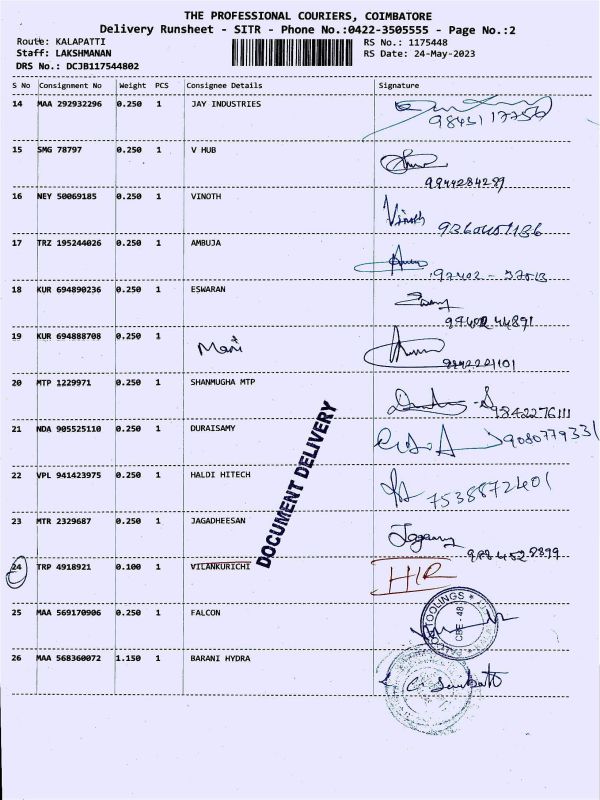 THE PROFESSIONAL COURIERS, COIMBATORE
Delivery Runsheet - SITR - Phone No.:0422-3505555 - Page No.:2
Route: KALAPATTI RS No.: 1175448
Staff: LAKSHMANAN RS Date: 24-May-2023
DRS No.: DCJB117544802
S No Consignment No Weight PCS Consignee Details Signature
14 MAA 292932296 0.250 1 JAY INDUSTRIES
15 SMG 78797 0.250 1 V HUB
9944284289
16 NEY 50069185 0.250 1 VINOTH Vinoth
17 TRZ 195244026 0.250 1 AMBUJA
18 KUR 694890236 0.250 1 ESWARAN
9940244891
19 KUR 694888708 0.250 1 Mani
9842221101
20 MTP 1229971 0.250 1 SHANMUGHA MTP
9842276111
21 NDA 905525110 0.250 1 DURAISAMY
9080779331
22 VPL 941423975 0.250 1 HALDI HITECH
7538872401
23 MTR 2329687 0.250 1 JAGADHEESAN
DOCUMENT DELIVERY
24 TRP 4918921 0.100 1 VILANKURICHI
25 MAA 569170906 0.250 1 FALCON
26 MAA 568360072 1.150 1 BARANI HYDRA